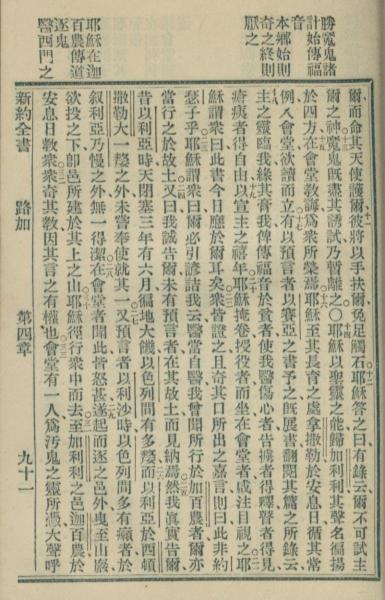 勝冤鬼諸
計始傳福
音
本鄉始則
奇之終則
厭之
耶穌在迦
百農傳道
逐鬼
醫西門之
爾而命其天使護爾彼將以手扶爾免足觸石耶穌答之曰有錄云爾不可試主
爾之神冤鬼旣盡其誘試乃暫離之〇耶穌以聖靈之能歸加利利其聲名徧揚
於四方在會堂敎誨爲衆所榮焉耶穌至其長育之處拿撒勒於安息日循其常
例入會堂欲讀而立有以預言者以賽亞之書予之旣展書翻閱其篇之所錄云
主之靈臨我緣其膏我俾傳福音於貧者使我醫傷心者告擄者得釋瞽者得見
瘡痍者得自由以宣主之禧年耶穌掩卷授役者而坐在會堂者咸注目視之耶
穌謂衆曰此書今日應於爾耳矣衆皆證之且奇其口所出之嘉言則曰此非約
瑟子乎耶穌謂衆曰爾必引諺詰我云醫當自醫我曾聞所行於加百農者爾亦
當行之於故土又曰我誠告爾未有預言者在其故土而見納焉然我眞實告爾
昔以利亞時天閉塞三年有六月徧地大饑以色列間有多嫠而以利亞於西頓
撒勒大一嫠之外未嘗奉使就其一又預言者以利沙時以色列間多有癩者於
叙利亞乃慢之外無一得潔在會堂者聞此皆怒甚遂起而逐之邑外曳至山巖
欲投之下卽邑所建於其上之山耶穌徑行衆中而去至加利利之邑迦百農於
安息日敎衆衆奇其敎因其言之有權也會堂有一人爲污鬼之靈所憑大聲呼
新約全書
路加
第四章
九十一